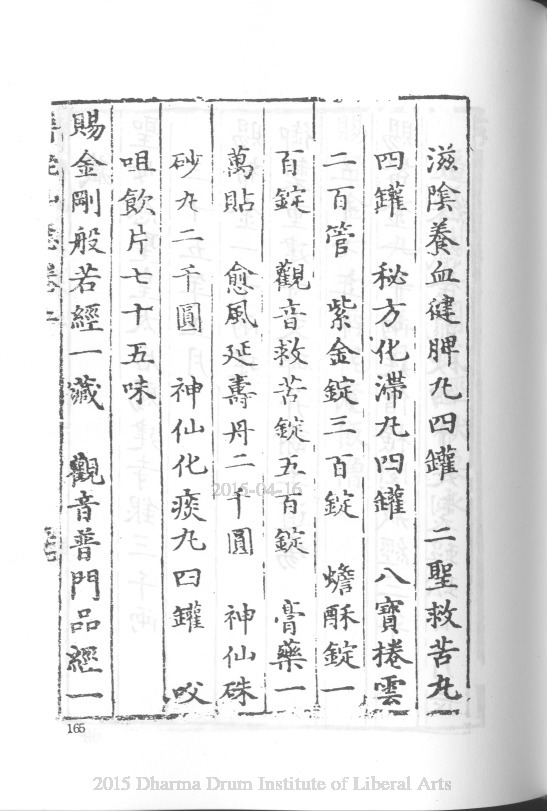 滋陰養血健脾丸四罐　二聖救苦丸
四罐　秘方化滯丸四罐　八寶捲雲
二百管　紫金錠三百錠　蟾酥錠一
百錠　觀音救苦錠五百錠　膏藥一
萬貼　愈風延壽丹二千圓　神仙硃
砂丸二千圓　神仙化痰丸四罐　㕮
咀飲片七十五味
賜金剛般若經一藏　觀音普門品經一
2015-04-16
165
2015 Dharma Drum Institute of Liberal Arts